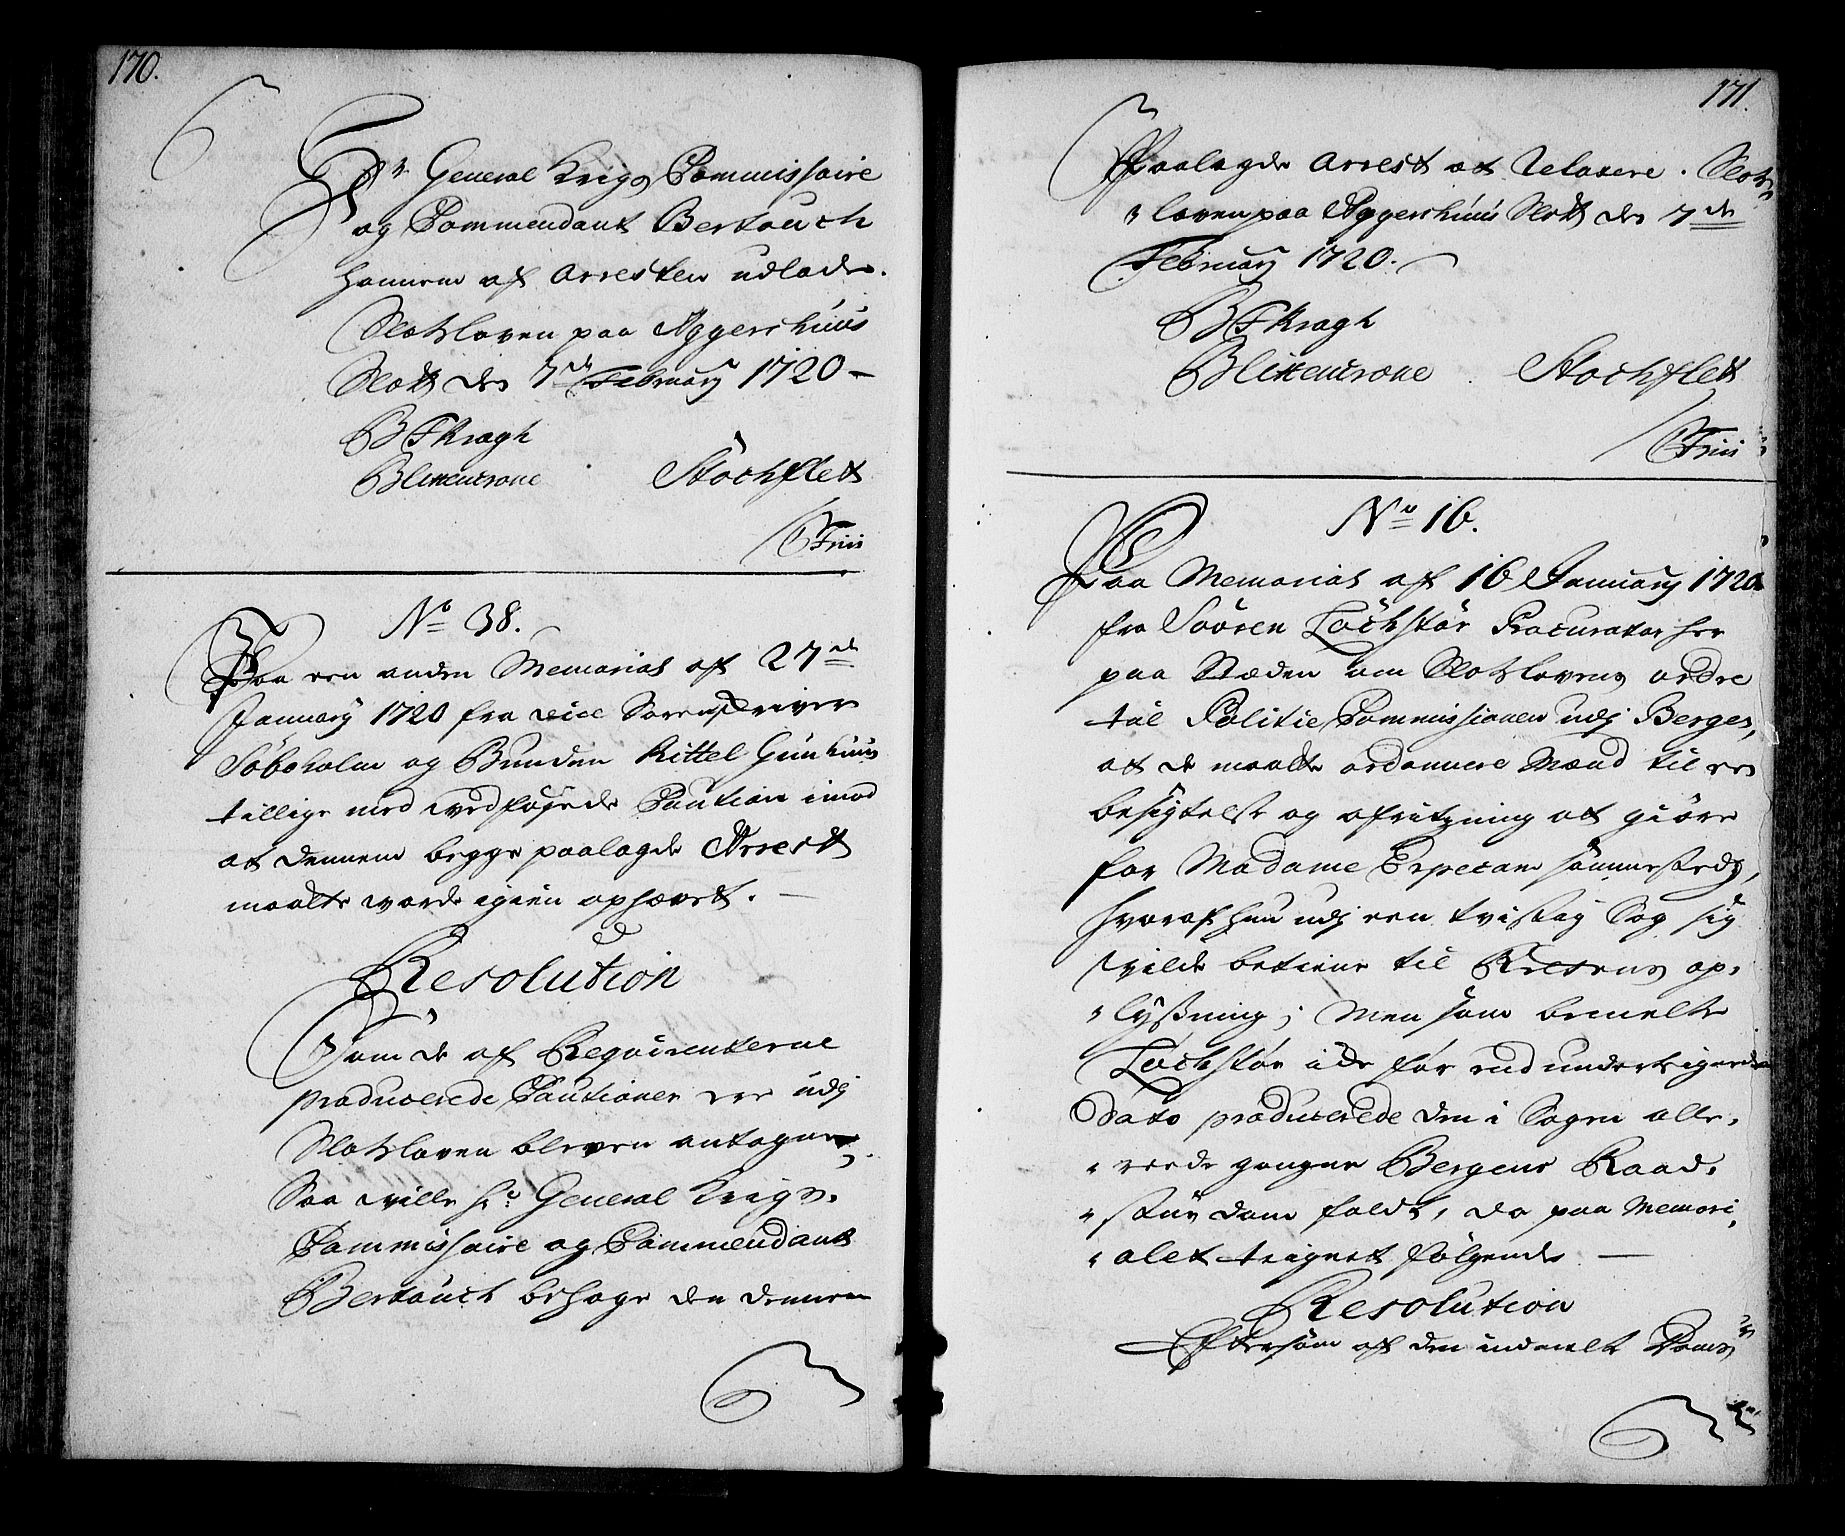 170.
Hr General Krigs Commissaire
og Commendant Bertouch
hannem af Arresten udlade.
Slotzloven paa Aggershuus
Slott den 7de February 1720 –
B F Kragh
Blixencrone Stochflett
T Friis
No 38.
Paa een anden Memorial af 27de
January 1720 fra vice Sorenskriver
Soboholm og Bunden Kittel Gunhuus
tillige med vedføyede Caution imod
at dennem begge paalagde Arrest
maatte vorde igien ophævet. –
Resolution
Som de af Requirenterne
producerede Cautioner ere udj
Slotzloven bleven antagne,
Saa ville Hr General Krigs-
Commissaire og Commendant
Bertouch behage den dennem
171.
Paalagde Arrest at relaxere. Slotz-
loven paa Aggershuus Slott den 7de
February 1720. –
B F Kragh
Blixencrone Stochflett
T Friis
No 16.
Paa Memorial af 16 January 1720
fra Søøren Løchstør Procurator her
paa Stæden om Slotzlovens ordre
til Politie Commissionen udj Bergen,
at de maatte ordonnere Mænd til en
besigtelse og afritzning at giøre
for Madame Erpecam sammesteds,
hvoraf hun udj een tvistig Sag sig
vilde betiene til Rettens op-
lysning; Men som bemelte
Løchstør icke før end undertegnede
Dato producerede den i Sagen alle-
reede gangne Bergens Raad-
stue dom faldt, da paa Memori-
alet teignet følgende –
Resolution
Eftersom af den indmelt Doms